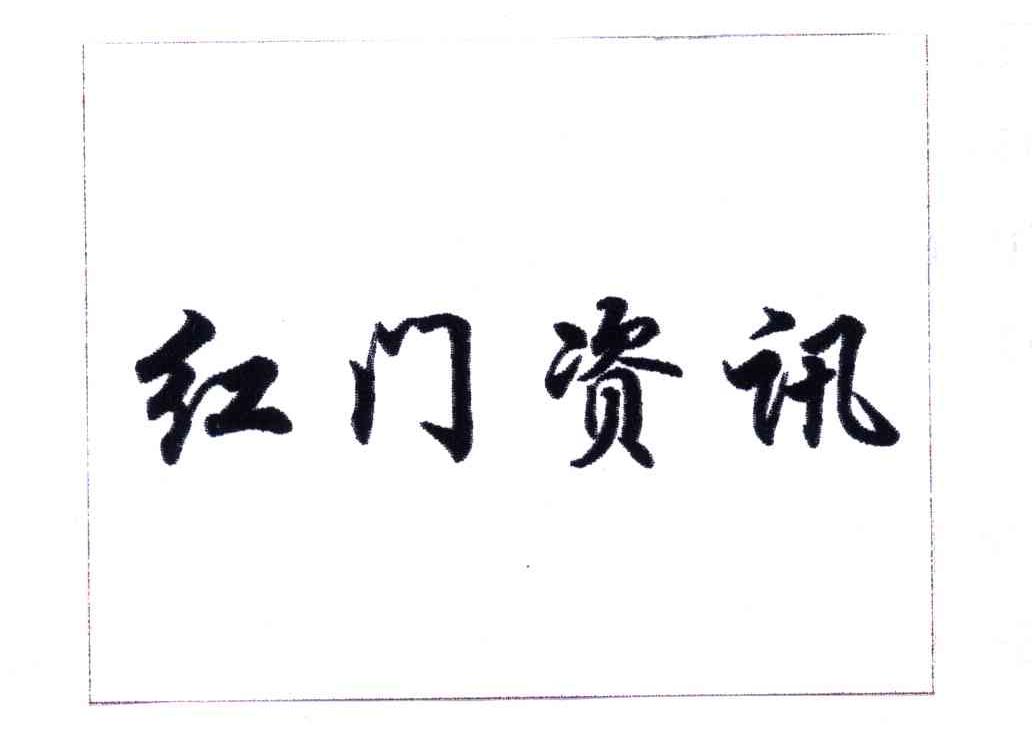 红门资讯